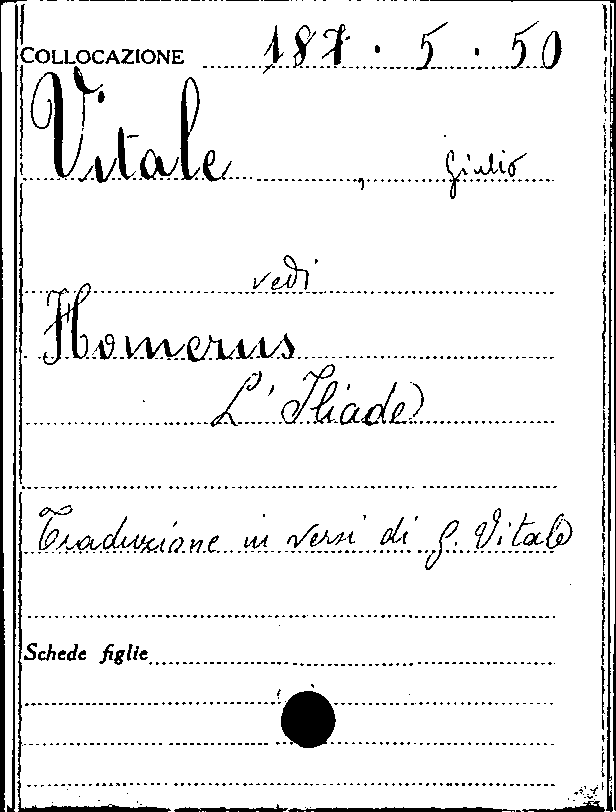 COLLOCAZIONE 187 . 5 . 50
Vitale, Giulio
vedi
Homerus
L' Iliade
Traduzione in versi di G. Vitale
Schede figlie